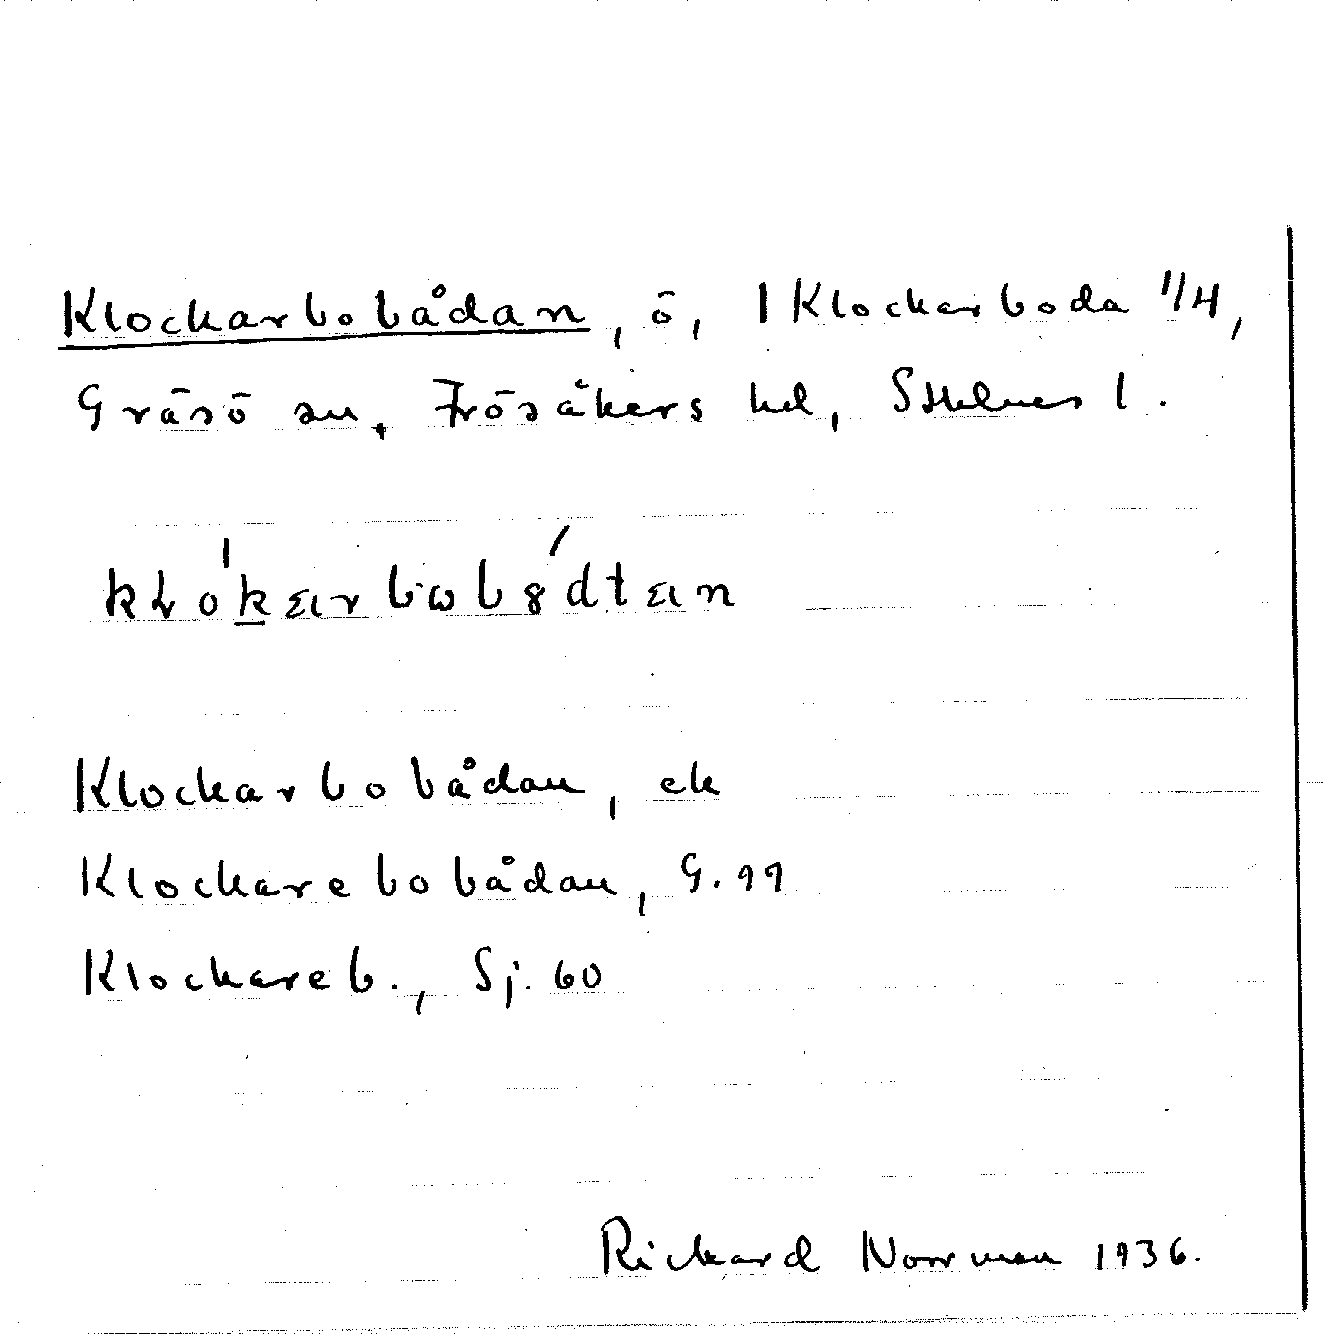 Klockarbobådan, ö, 1 Klockarboda 1/4,
Gräsö sn, Frösåkers hd, Sthlms l.
Klockarbobådan, ek
Klockarebobådan, G. 99
Klockareb., Sj. 60
Rickard Norrman 1936.